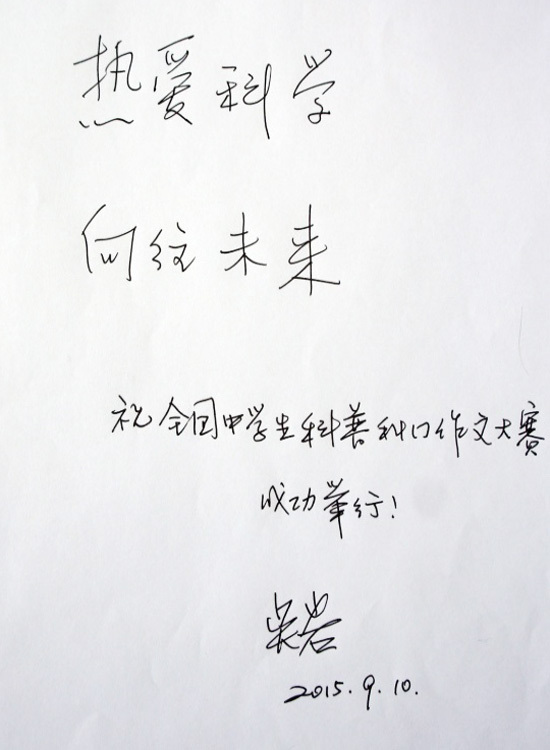 热爱科学
向往未来
祝全国中学生科普科幻作文大赛
成功举行!
吴岩
2015.9.10.